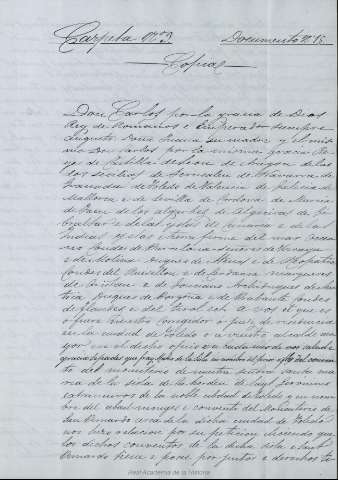 Carpeta nº 3 Documento nº 15.
Copia
Don Carlos por la gracia de Dios
Rey de Romanos e Emperador siempre
Augusto Doña Juana su madre y el mis
mo Don Carlos por la misma gracia Re
yes de Castilla de Leon de Aragon de las
dos secilias de Jerusalen de Navarra de
Granada de Toledo de Valencia de Galicia de
Mallorca e de Sevilla de Cordova de Murcia
de Jaen de los algarbes de Algecira de Gi
braltar e de las yslas de Canaria e de las
Indias yslas e tierra firme del mar Oceano
Condes de Barcelona señores de Vizcaya
e de Molina Duques de Atenas e de Neopatria
Condes del Ruisellon e de Cerdania marqueses
de Oristan e de Gociano Archiduques de Aus
trica Duques de Borgoña e de Brabante condes
de Flandes e del Tirol etc. a vos el que es
o fuere nuestro Corregidor o juez de residencia
en la ciudad de Toledo a vuestro alcalde ma
yor en el dicho oficio e a cada uno de vos salud e
gracia Sepades que fray de la en nombre del prior e convento
to del monesterio de nuestra señora Santa ma
ria de la sisla de la horden de Sant Jeronimo
extramuros de la noble ciudad de Toledo y en nom
bre del abad monges e convento del Monesterio de
San Bernardo cerca de la dicha ciudad de Toledo
nos hizo relacion por su peticion diciendo que
los dichos conventos de la dicha sisla e San
Bernardo tiene e posee por justos e derechos ti
Real Academia de la Historia